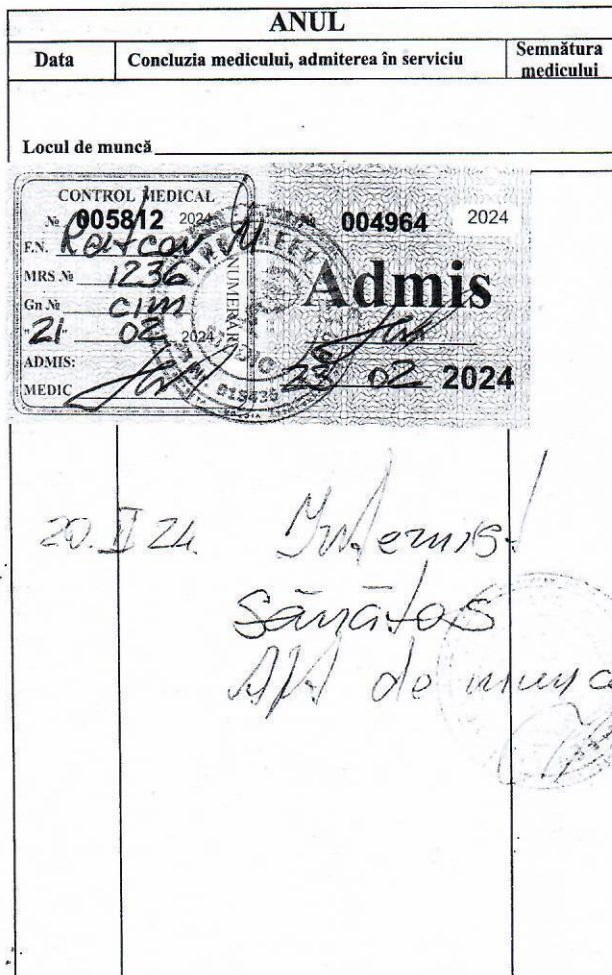 ANUL
Data Concluzia medicului, admiterea în serviciu Semnătura medicului
Locul de muncă
CONTROL MEDICAL
№ 005812 2024
F.N.
MRS № 1236
Gn № cim
"21" 02 2024
ADMIS:
MEDIC
NUMERAR
004964 2024
Admis
02 2024
20.II 24 Internist
Sănătos
Apt de munca